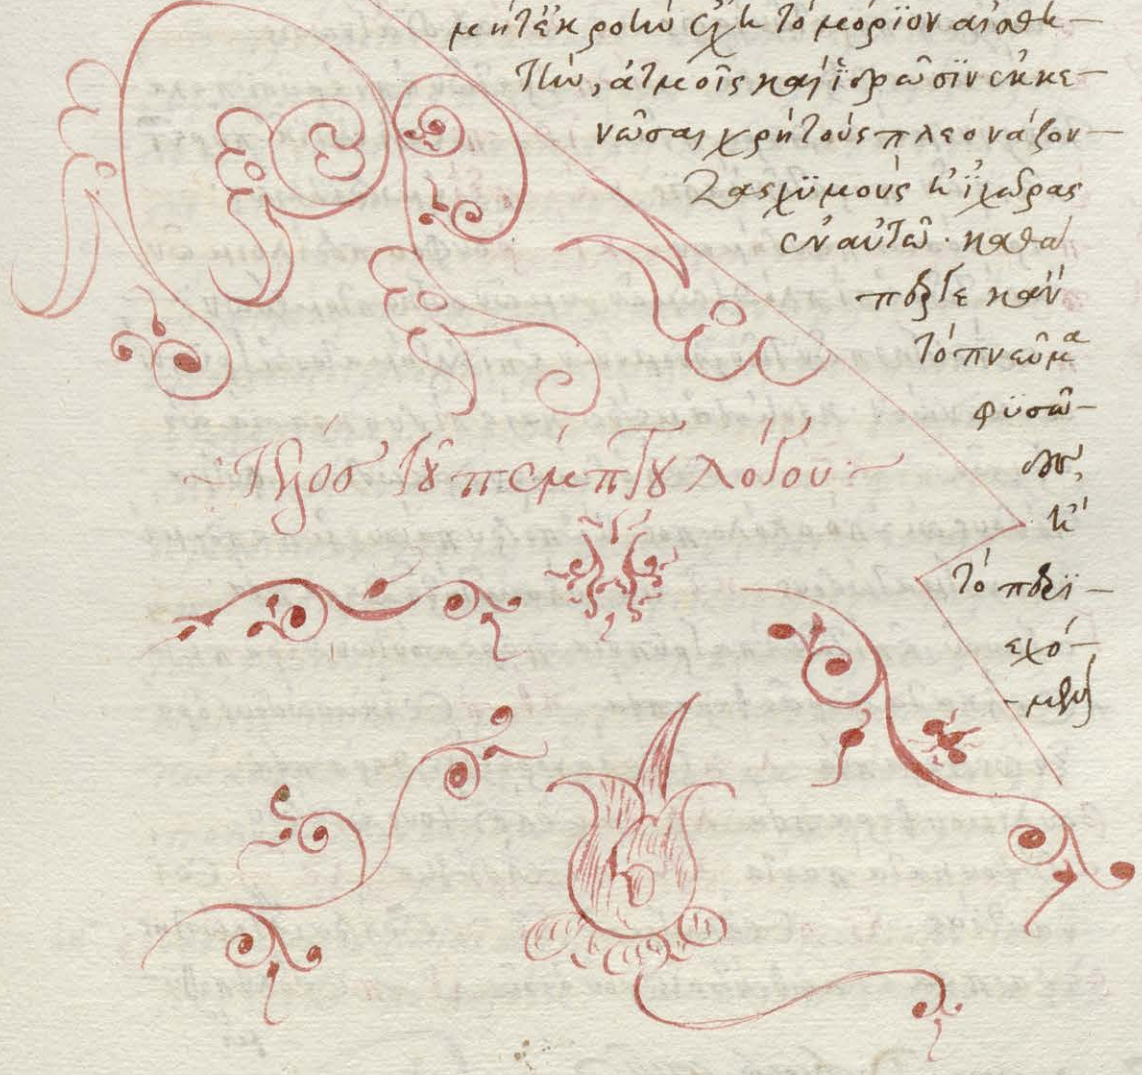 μήτε κροτεῖν ἔχει τὸ μόριον αἰσθη-
τικ, ἀτμοῖς καὶ ἱδρῶσιν ἐκκε-
νῶσαι χρὴ τοὺς πλεονάζον-
τας χυμοὺς καὶ ἰχῶρας
ἐν αὐτῶ. καθά
περ τε κἀν
τὸ πνεῦμα
φϋσῶ-
καὶ
τὸ περϊ-
εχό-
-μενον
Τέλος τοῦ πέμπτου λόγου: